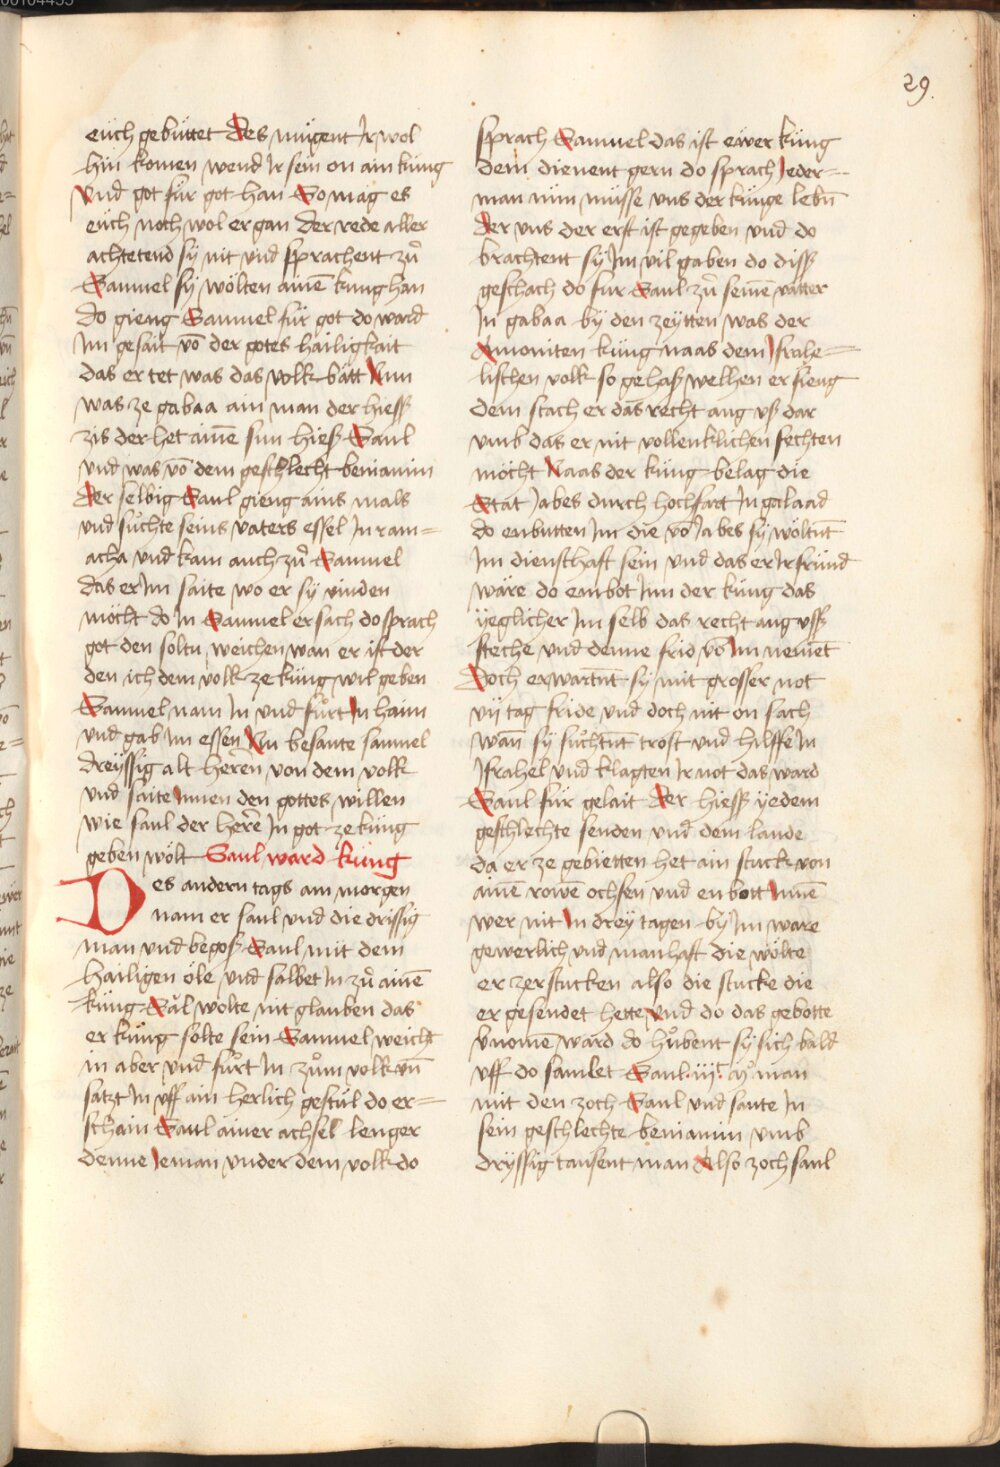 29.
euch gebüttet Des mügent Ir wol
hin komen wend Ir sein on ain küng
Vnd got für got han So mag es
euch noch wol ergan Der rede aller
achtetend sy nit vnd sprachent zů
Samuel sy wölten ainē kung han
do gieng Samuel für got do ward
im gesait vō der gotes hailigkait
das er tet was das volk bätt Nun
was ze gabaa ain man der hiess
zis der het ainē sun hiess Saul
vnd was vō dem geschlecht beniamin
Der selbig Saul gieng ains mals
vnd sůchte seins vaters essel In ram=
acha vnd kam auch zů Samuel
das er Im saite wo er sy vinden
möcht do In Samuel ersach do sprach
got den soltu weichen wan er ist der
den ich dem volk ze küng wil geben
Samuel nam In vnd fůrt In haim
vnd gab im essen Nu besante samuel
dreyssig alt heren von dem volk
vnd saite Innen den gottes willen
wie saul der here In got ze küng
geben wölt Saul ward küng
Des andern tags am morgen
nam er saul vnd die drissig
man vnd begoss Saul mit dem
hailigen öle vnd salbet In zů ainē
küng Saul wolte nit glauben das
er küng solte sein Samuel weicht
in aber vnd fůrt In zům volk vn̄
satzt In vff ain herlich gestül do er=
schain Saul ainer achsel lenger
denne Ieman vnder dem volk do
sprach Samuel das ist ewer küng
dem dienent gern do sprach Ieder=
man nun müsse vns der künge lebn̄
Der vns der erst ist gegeben vnd do
brachtent sy Im vil gaben do diss
geschach do für Saul zů seinē vatter
In gabaa by den zeytten was der
Amoniten küng naas dem Israhe=
lischen volk so gehass welhen er fieng
dem stach er das recht aug vss dar
vmb das er nit vollenklichen fechten
möcht Naas der küng belag die
Stat Jabes durch hochfart In galaad
do enbutten Im die vō Jabes sy wöltnt̄
Im diensthaft sein vnd das er Ir fründ
wäre do embot Inn der küng das
yeglicher Im selb das recht aug vss
steche vnd denne frid vō Im nemēt
Doch erwartnt̄ sy mit grosser not
vij tag fride vnd doch nit on sach
wan̄ sy sůchtnt̄ trost vnd hilffe In
Israhel vnd klagten Ir not das ward
Saul für gelait Der hiess yedem
geschlechte senden vnd dem lande
da er ze gebietten het ain stuck von
ainē rowē ochsen vnd enbott Innē
wer nit In drey tagen by Im ware
gewerlich vnd manhaft die wölte
er zerstucken also die stucke die
er gesendet hette Vnd do das gebotte
vnomē ward do hůbent sy sich bald
vff do samlet Saul man
mit den zoch Saul vnd sante In
sein geschlechte beniamin vmb
dryssig tausent man Also zoch saul